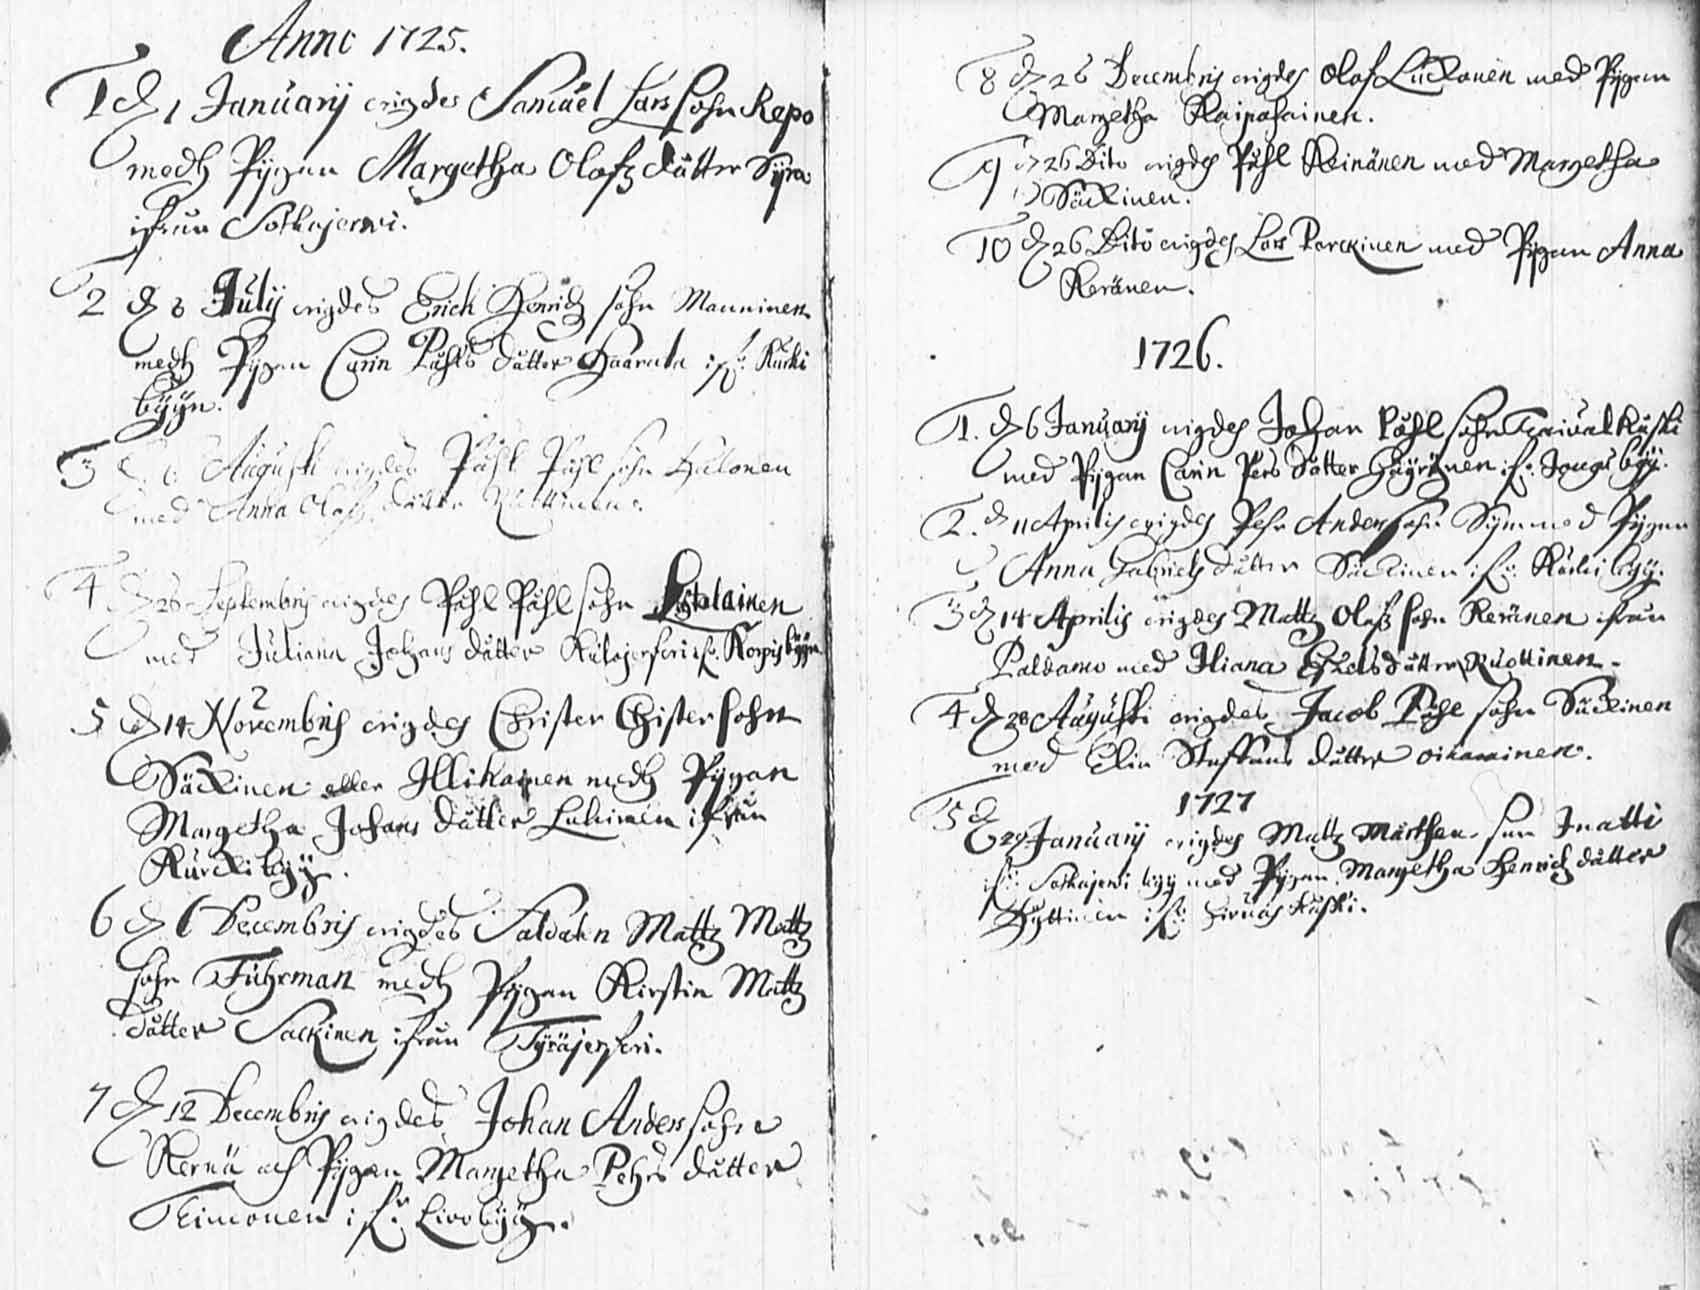 Anno 1725.
1 d 1 Januarij wigdes Samuel Larssohn Repo
medh Pigan Margetha Olofz dåtter Syra
ifrån Sotkajerwi.
2 d 8 Julij wigdes Erich Henrichz sohn Manninen
medh Pigan Carin Påhls dåtter Haarala if: Kurki
byyn.
3 d 6 Augusti wigdes Påhl Påhl sohn Halonen
med Anna Olofz dåtter
4 d 26 Septembris wigdes Påhl Påhl sohn
med Juliana Johans dåtter if. Korpisbyyn
5 d 14 Novembris wigdes Christer Christersohn
Säckinen eller Illikainen medh Pigan
Margetha Johans dåtter Lukinen ifrån
Kurckibyy.
6 d 6 Decembris wigdes Saldatn Mattz Mattz
sohn Fuhrman medh Pigan Kirstin Mattz
dåtter Sackinen ifrån Tyräjerferi.
7 d 12 Decembris wigdes Johan Anderssohn
Kernä och Pigan Margetha Pehrs dåtter
Timonen if: Livobyy.
8 d 26 Decembris wigdes Olof Luckonen med Pigan
Margetha Kaipahainen.
9 d 26 Dito wigdes Påhl Keinänen med Margetha
Säckinen.
10 d 26 Dito wigdes Lars Parckinen med Pigan Anna
Keränen.
1726.
1. d 6 Januarij wigdes Johan Påhl sohn Taivalkuski
med Pigan Carin Pers dåtter Häyrynen if: Jongu byy.
2. d 11 Aprilis wigdes Pehr Anderssohn Syri med Pigan
Anna Gabriels dåtter Säckinen if: Kurki byy.
3 d 14 Aprilis wigdes Mattz Olofz sohn Keränen ifrån
Paldamo med Iliana Eskels dåtter Ruottinen.
4 d 28 Augusti wigdes Jacob Påhl sohn Säckinen
med Elin Staffans dåtter Oikarainen.
1727
5 d 29 Januarij wigdes Mattz Mårthen son Inatti
if: Sotkajerwi byy med Pigan Margetha Henrich dåtter
if: